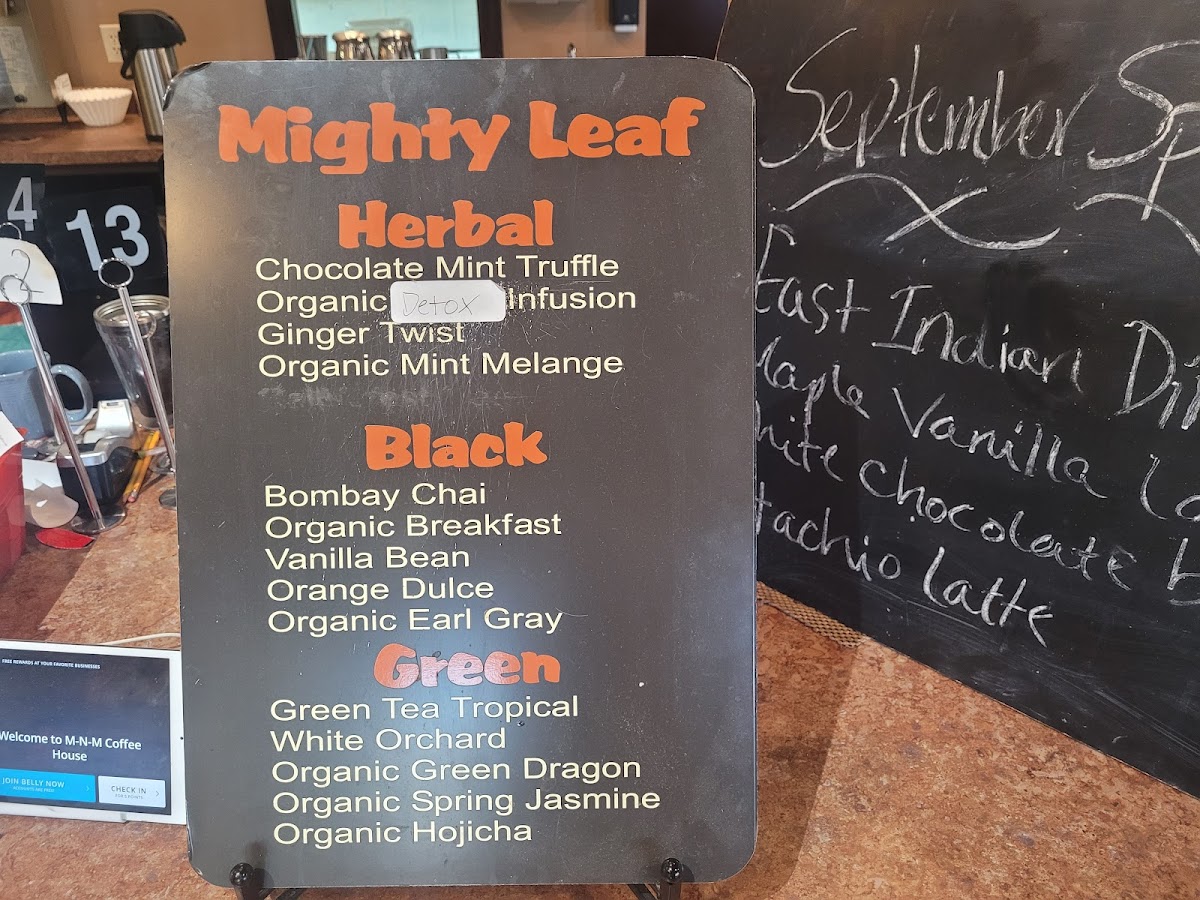 Mighty Leaf
Herbal
Chocolate Mint Truffle
Organic Detox Infusion
Ginger Twist
Organic Mint Melange
Black
Bombay Chai
Organic Breakfast
Vanilla Bean
Orange Dulce
Organic Earl Gray
Green
Green Tea Tropical
White Orchard
Organic Green Dragon
Organic Spring Jasmine
Organic Hojicha
September Sp
East Indian Di
Maple Vanilla La
hite chocolate b
tachio latte
4
13
2
FREE REWARDS AT YOUR FAVORITE BUSINESSES
Welcome to M-N-M Coffee
House
JOIN BELLY NOW
CHECK IN